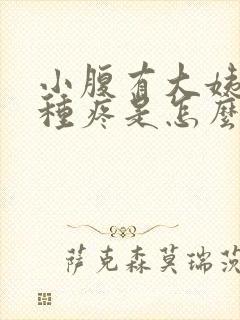 小腹有大姨
種疼是怎麼
萨克森莫瑞茨